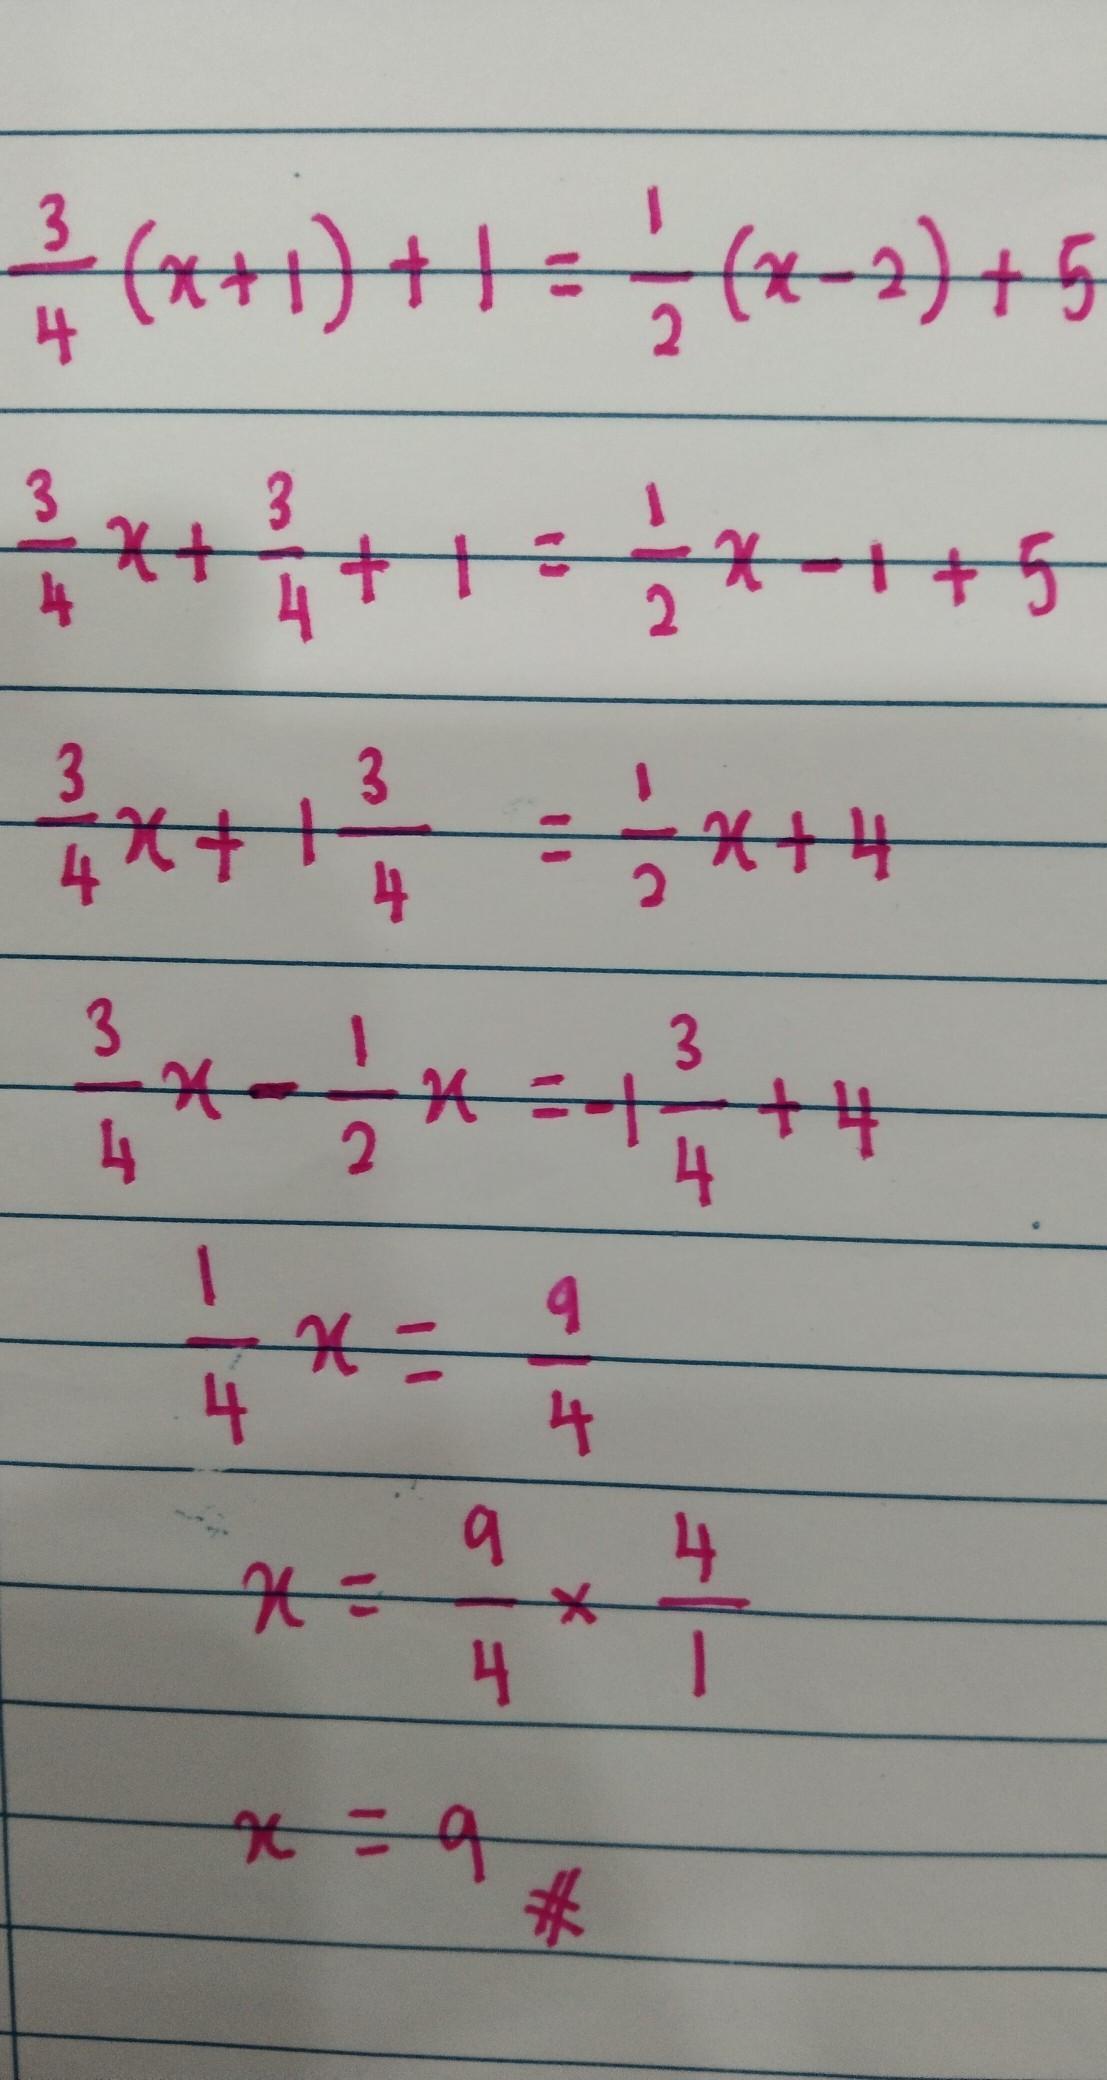 3/4 (x+1) + 1 = 1/2 (x-2) + 5
3/4 x + 3/4 + 1 = 1/2 x - 1 + 5
3/4 x + 1 3/4 = 1/2 x + 4
3/4 x - 1/2 x = -1 3/4 + 4
1/4 x = 9/4
x = 9/4 × 4/1
x = 9 #